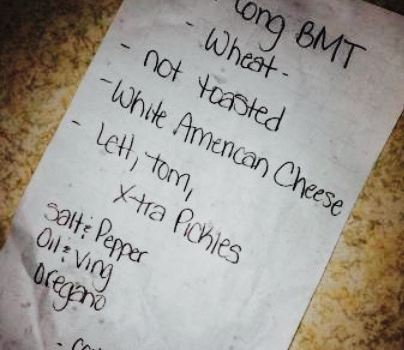 - long BMT
- Wheat -
- not toasted
- White American Cheese
- Lett, tom,
X-tra Pickles
Salt & Pepper
Oil & Ving
Oregano